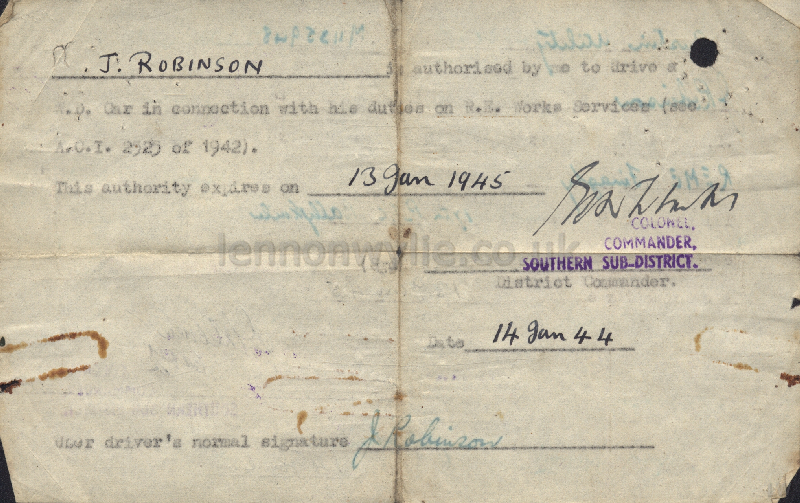 J. ROBINSON is authorised by me to drive a
W.D. Car in connection with his duties on R.E. Works Services (see
A.C.I. 2525 of 1942).
This authority expires on 13 Jan 1945
lennonwylie.co.uk
COLONEL,
COMMANDER,
SOUTHERN SUB-DISTRICT.
District Commander.
Date 14 Jan 44
User driver's normal signature J Robinson